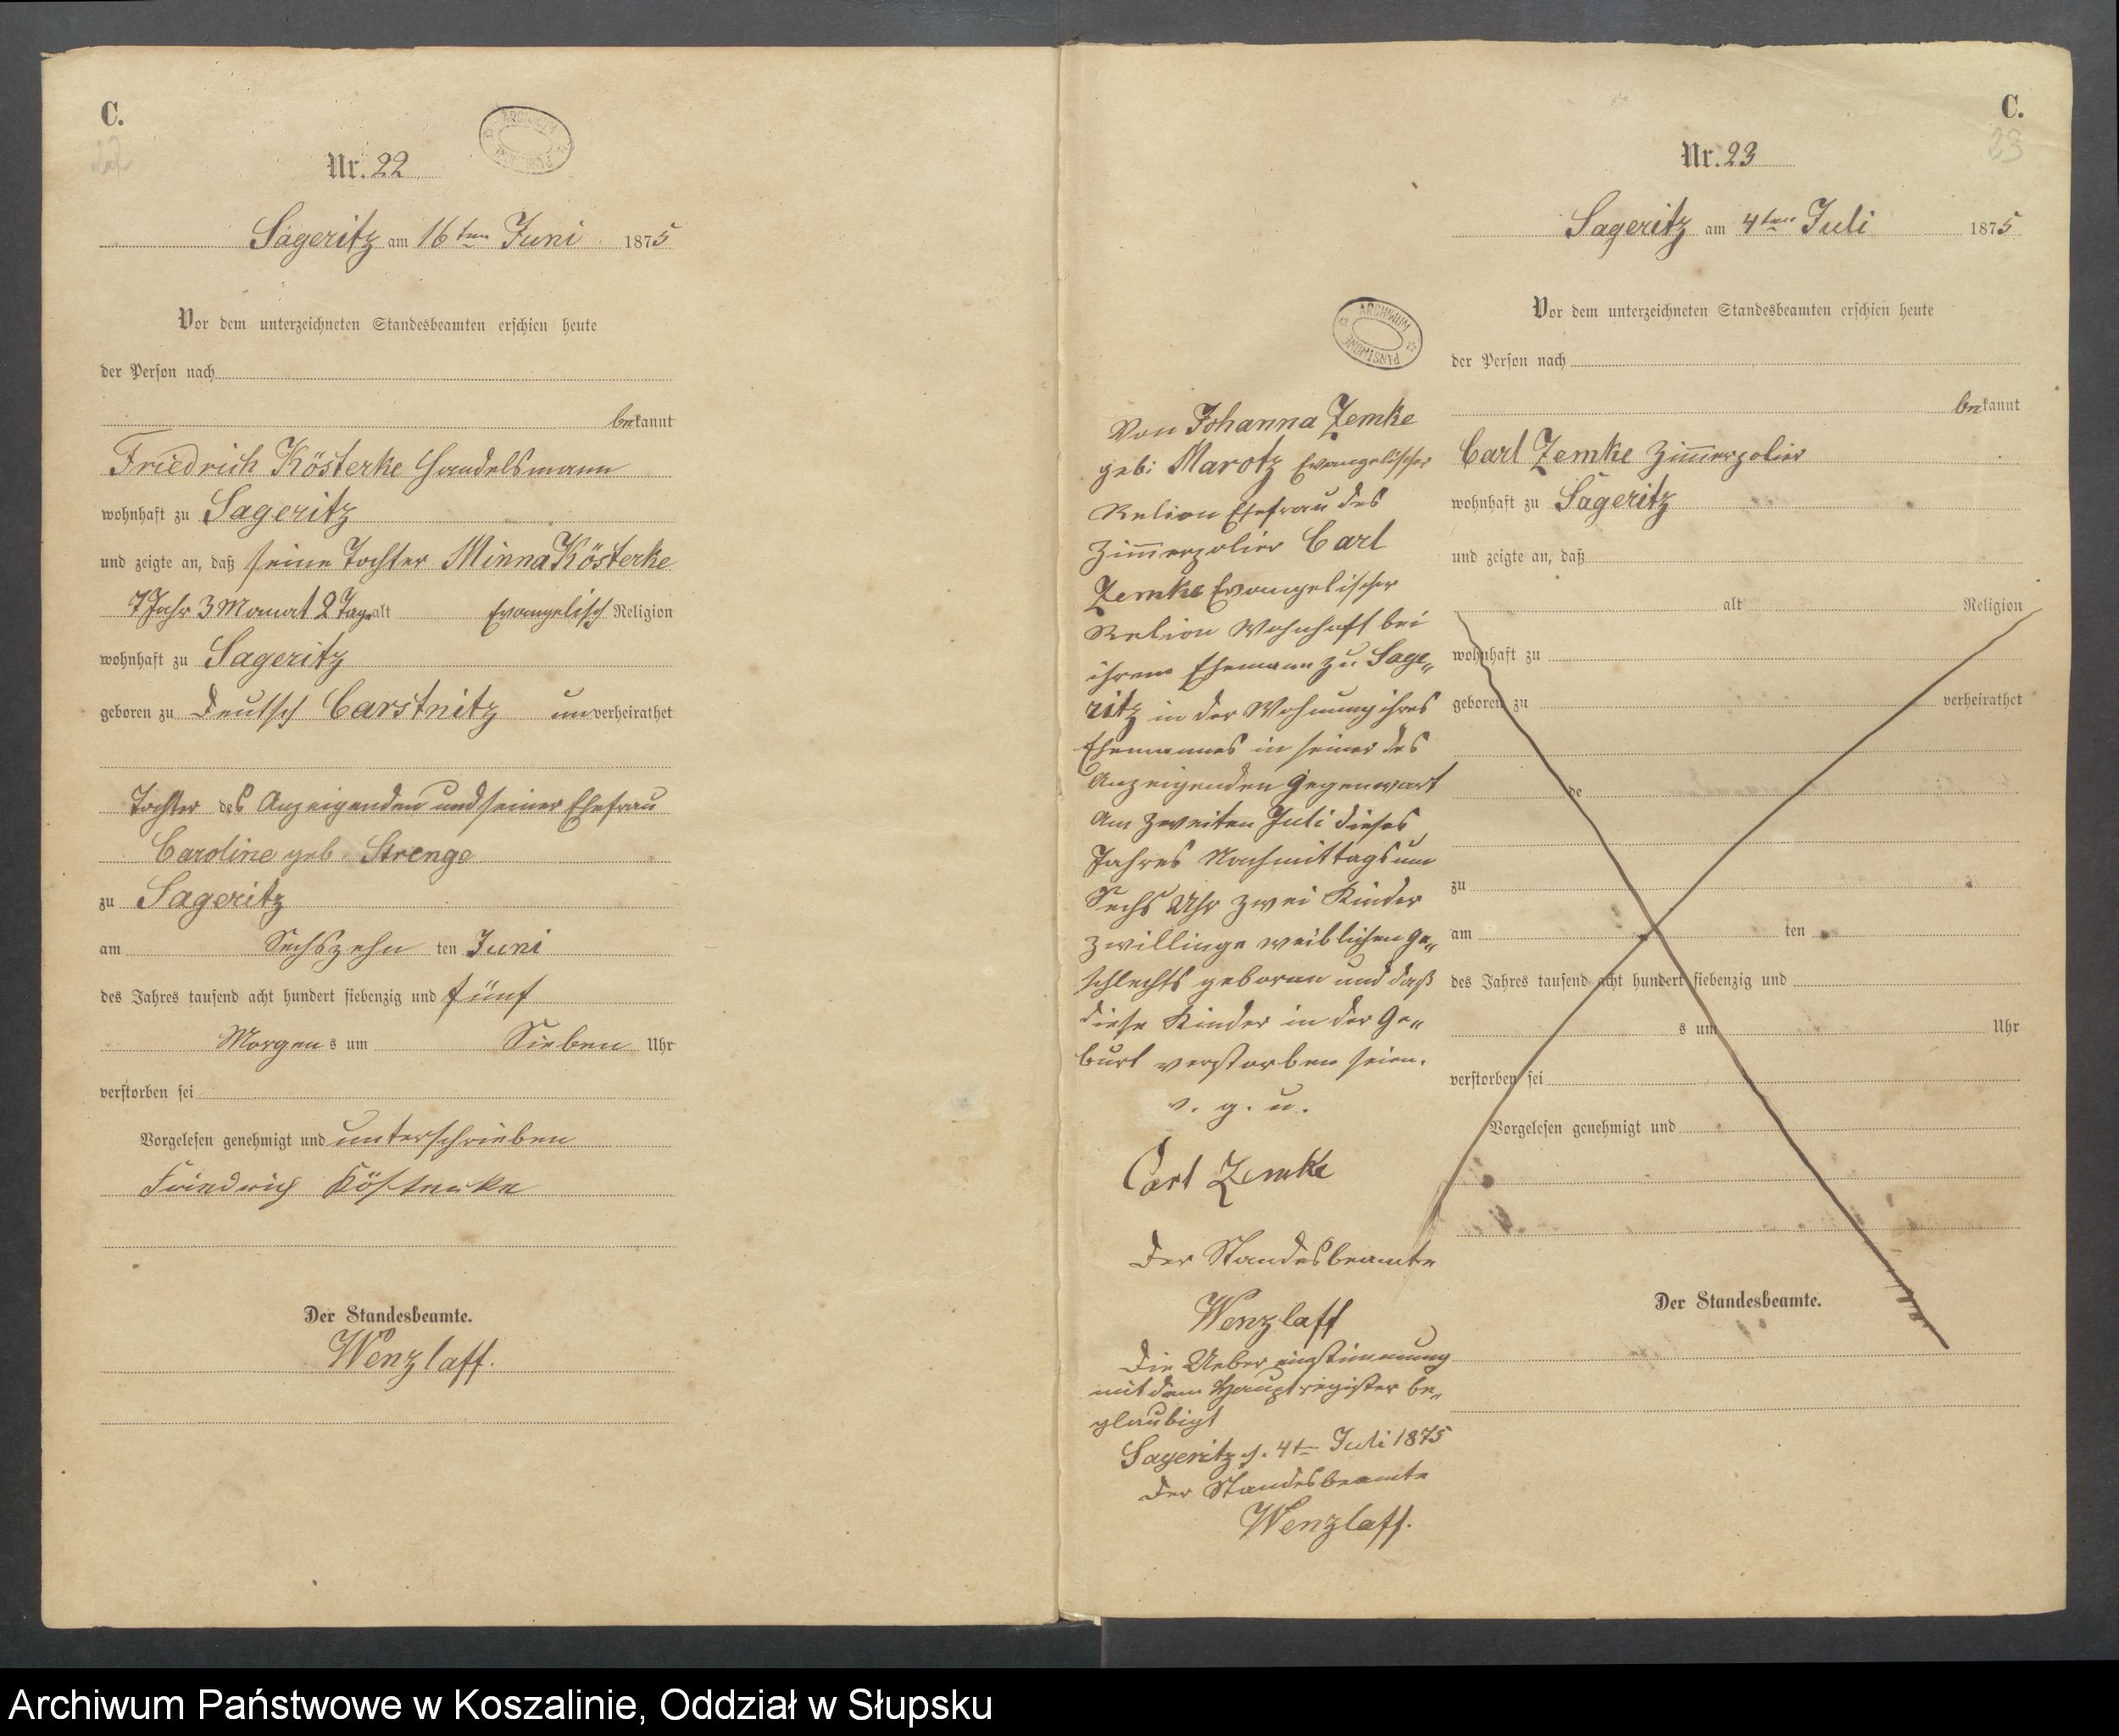 C.
Nr. 22
ARCHIWUM PAŃSTWOWE
Sageritz am 16ten Juni 1875
Vor dem unterzeichneten Standesbeamten erschien heute
der Person nach
bekannt
Friedrich Kösterke Handelsmann
wohnhaft zu Sageritz
und zeigte an, daß seine Tochter Minna Kösterke
7 Jahr 3 Monat 2 Tage alt Evangelisch Religion
wohnhaft zu Sageritz
geboren zu Deutsch Carstnitz unverheirathet
Tochter des Anzeigenden und seiner Ehefrau
Caroline geb. Strenge
zu Sageritz
am Sechszehn ten Juni
des Jahres tausend acht hundert siebenzig und fünf
Morgens um Sieben Uhr
verstorben sei
Vorgelesen genehmigt und unterschrieben
Friedrich
Der Standesbeamte.
Wenzlaff.
C.
23
Nr. 23
Sageritz am 4ten Juli 1875
ARCHIWUM PAŃSTWOWE
Vor dem unterzeichneten Standesbeamten erschien heute
der Person nach
bekannt
Carl Zemke Zimmerpolier
wohnhaft zu Sageritz
und zeigte an, daß
alt Religion
wohnhaft zu
geboren zu verheirathet
de
zu
am ten
des Jahres tausend acht hundert siebenzig und
s um Uhr
verstorben sei
Vorgelesen genehmigt und
Der Standesbeamte.
Von Johanna Zemke
geb: Marotz Evangelischer
Relion Ehefrau des
Zimmerpolier Carl
Zemke Evangelischer
Relion Wohnhaft bei
ihrem Ehemann zu Sage„
ritz in der Wohnung ihres
Ehemannes in seiner des
Anzeigenden Gegenwart
Am Zweiten Juli dieses
Jahres Nachmittags um
Sechs Uhr zwei Kinder
Zwillinge weiblichen Ge„
schlechts geboren und daß
diese Kinder in der Ge„
burt verstorben seien.
v. g. u.
Carl Zemke
Der Standesbeamte
Wenzlaff
Die Uebereinstimmung
mit dem Hauptregister be„
glaubigt
Sageritz d. 4t Juli 1875
Der Standesbeamte
Wenzlaff.
Archiwum Państwowe w Koszalinie, Oddział w Słupsku